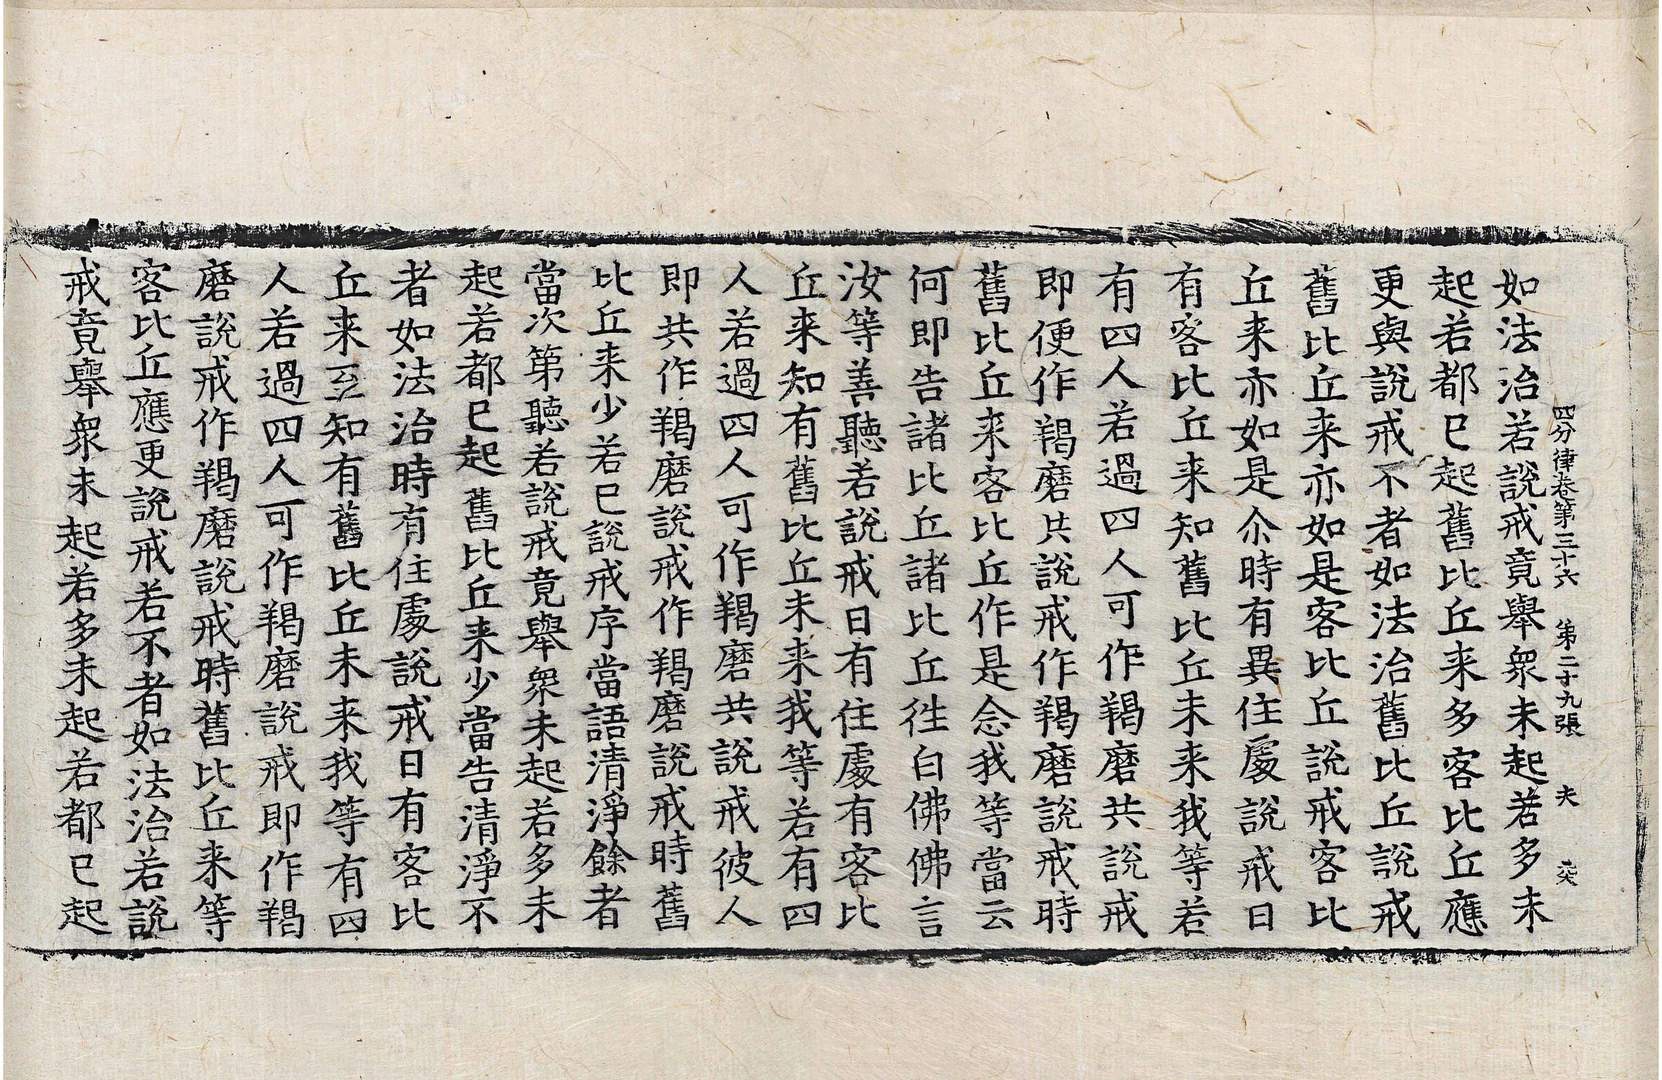 四分律卷第三十六　第二十九張　夫
如法治若說戒竟舉衆未起若多未
起若都已起舊比丘来多客比丘應
更與說戒不者如法治舊比丘說戒
舊比丘来亦如是客比丘說戒客比
丘来亦如是尒時有異住處說戒日
有客比丘来知舊比丘未来我等若
有四人若過四人可作羯磨共說戒
即便作羯磨共說戒作羯磨說戒時
舊比丘来客比丘作是念我等當云
何即告諸比丘諸比丘徃白佛佛言
汝等善聽若說戒日有住處有客比
丘来知有舊比丘未来我等若有四
人若過四人可作羯磨共說戒彼人
即共作羯磨說戒作羯磨說戒時舊
比丘来少若已說戒序當語清淨餘者
當次第聽若說戒竟舉衆未起若多未
起若都已起舊比丘来少當告清淨不
者如法治時有住處說戒日有客比
丘来至知有舊比丘未来我等有四
人若過四人可作羯磨說戒即作羯
磨說戒作羯磨說戒時舊比丘来等
客比丘應更說戒若不者如法治若說
戒竟舉衆未起若多未起若都已起